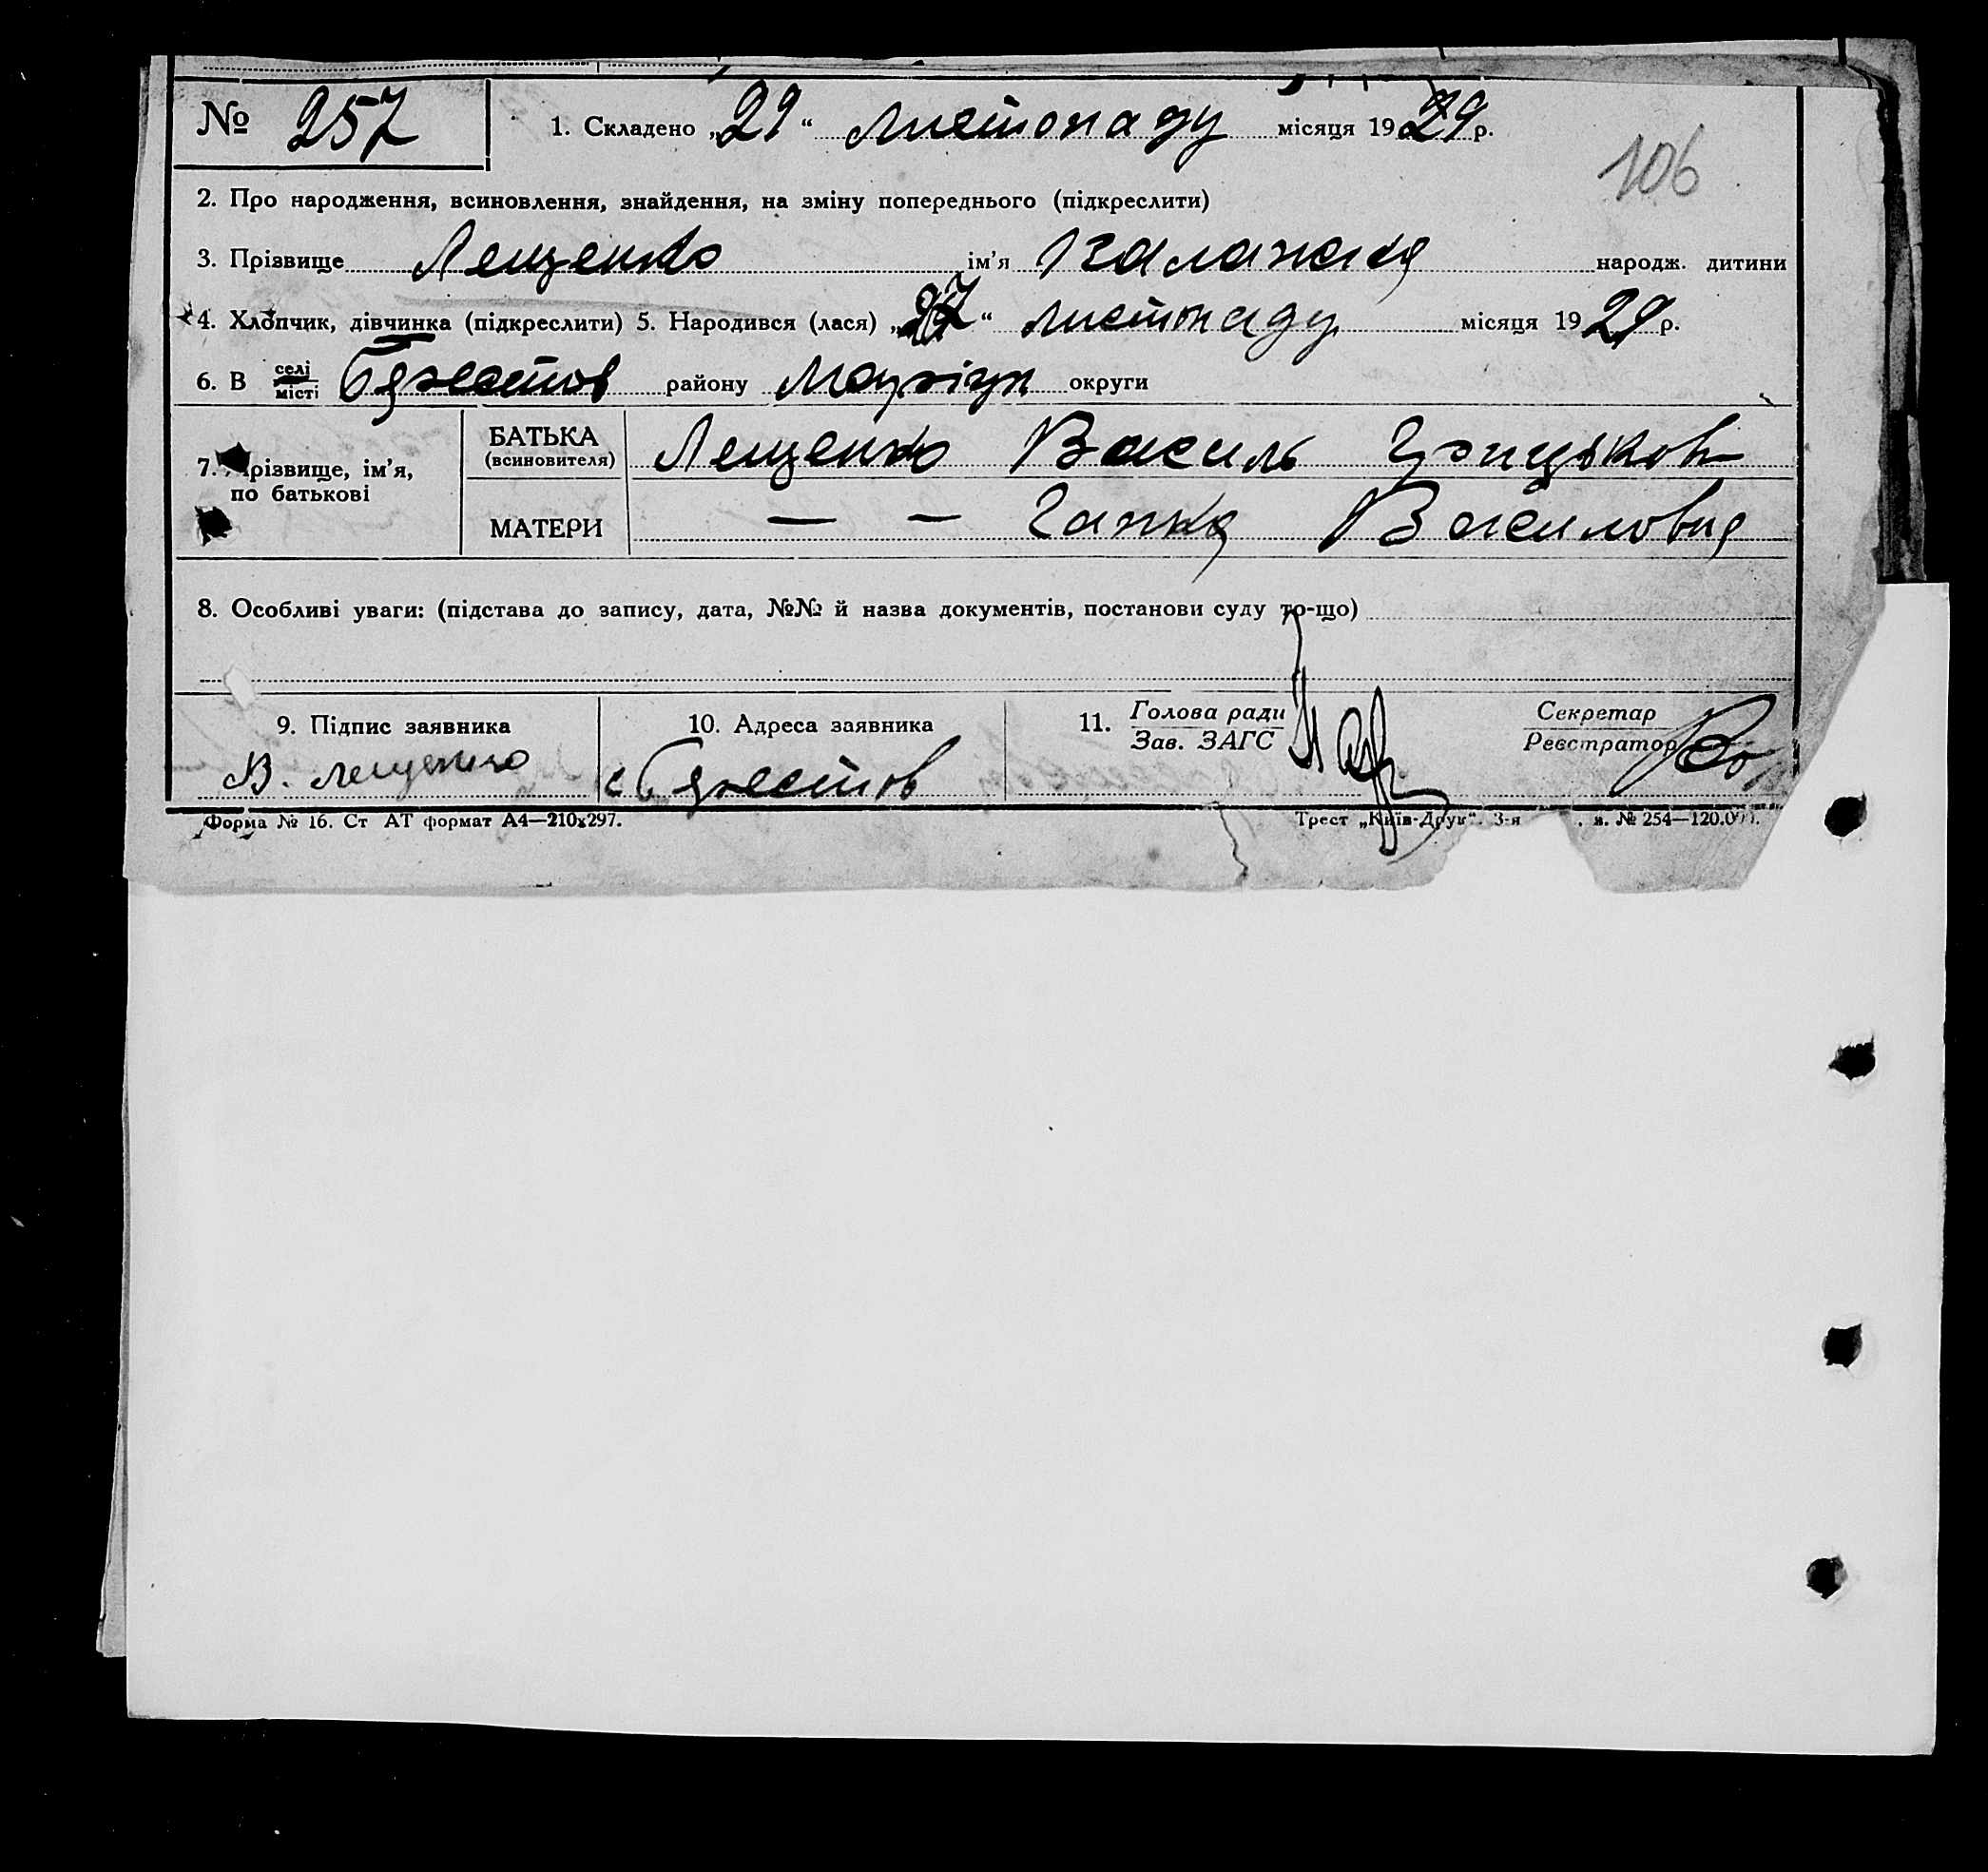 № 257
1. Складено „29“ листопаду місяця 1929 р.
106
2. Про народження, всиновлення, знайдення, на зміну попереднього (підкреслити)
3. Прізвище Лещенко ім’я Каланжия народж. дитини
4. Хлопчик, дівчинка (підкреслити) 5. Народився (лася) „27“ листопаду місяця 1929 р.
6. В селі місті району Маріуп округи
7. Прізвище, ім’я, по батькові
БАТЬКА (всиновителя) Лещенко Василь Грицьков
МАТЕРИ — — Ганна Василовна
8. Особливі уваги: (підстава до запису, дата, №№ й назва документів, постанови суду то-що)
9. Підпис заявника 10. Адреса заявника 11. Голова ради Зав. ЗАГС Секретар Реєстратор
В. Лещенко с.
Форма № 16. Ст АТ формат А4—210х297. Трест „Київ-Друк“. 3-я № 254—120.000.